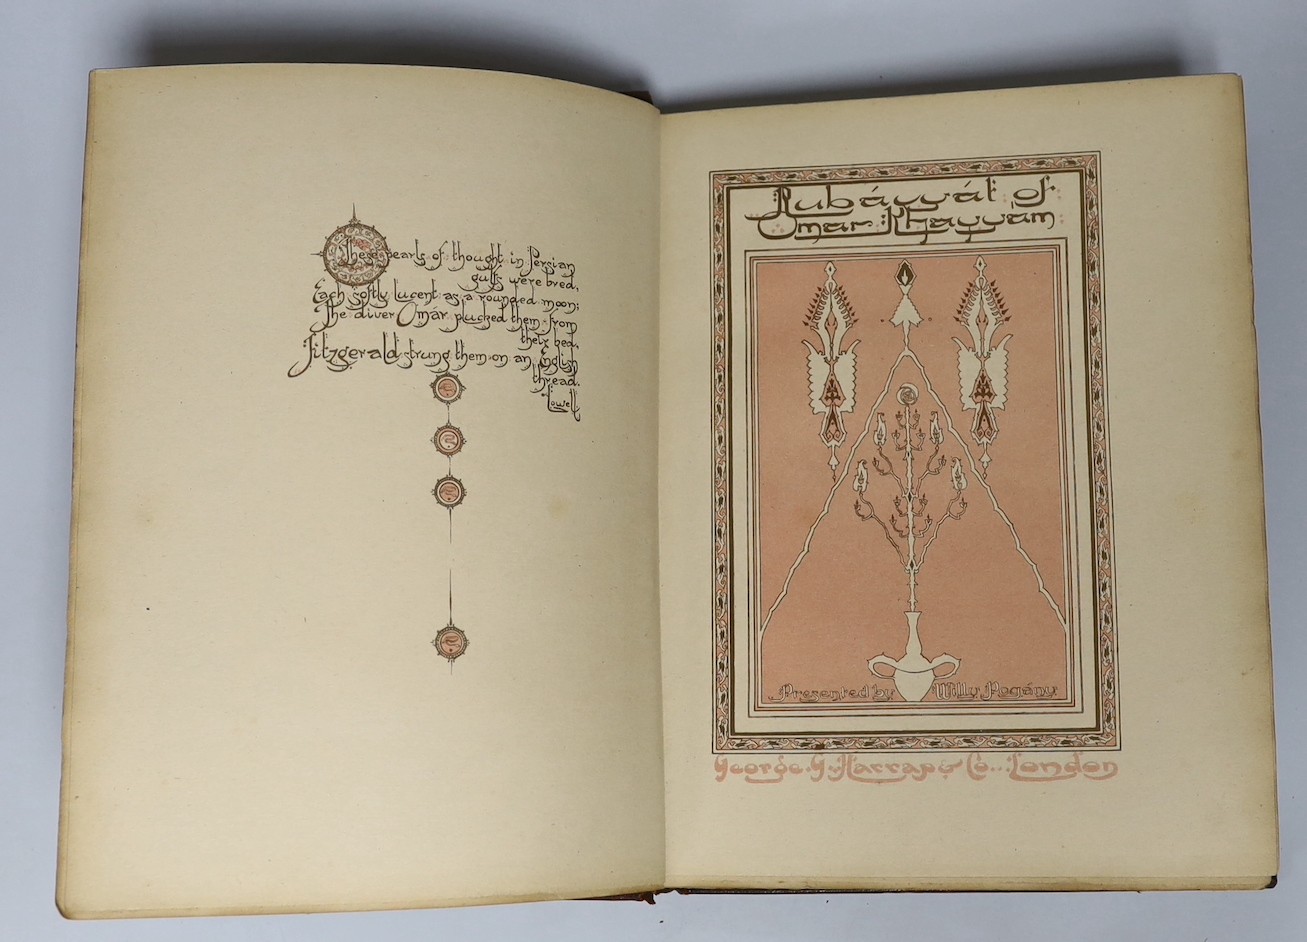 These pearls of thought in Persian
gulfs were bred,
Each softly lucent as a rounded moon;
The diver Omár plucked them from
their bed,
Fitzgerald strung them on an English
thread.
Lowell
Rubáiyát of
Omar Khayyám
Presented by Willy Pogány
George G. Harrap & Co. London